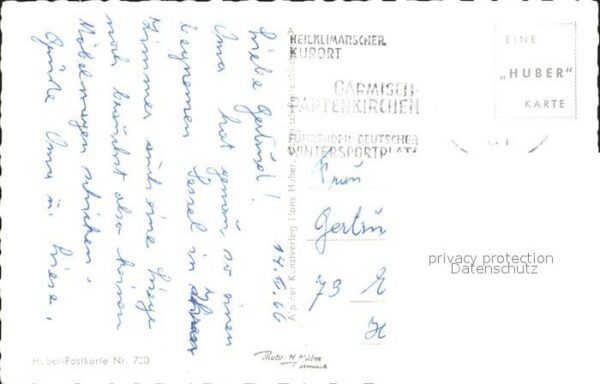 Liebe Gertrud!
Oma hat genau so einen
bequemen Sessel in ihrem
Zimmer und eine Liege
noch brauchst also keinen
Möbelwagen schicken.
Grüße Oma u. Liesel.
14. 66
HEILKLIMATISCHER
KURORT
GARMISCH-
PARTENKIRCHEN
FÜHRENDER DEUTSCHER
WINTERSPORTPLATZ
EINE
„HUBER"
KARTE
Alpiner Kunstverlag Hans Huber, Garmisch-Partenkirchen
Gertru
73 E
privacy protection
Datenschutz
Huber-Postkarte Nr. 720
Photo-H. Huber